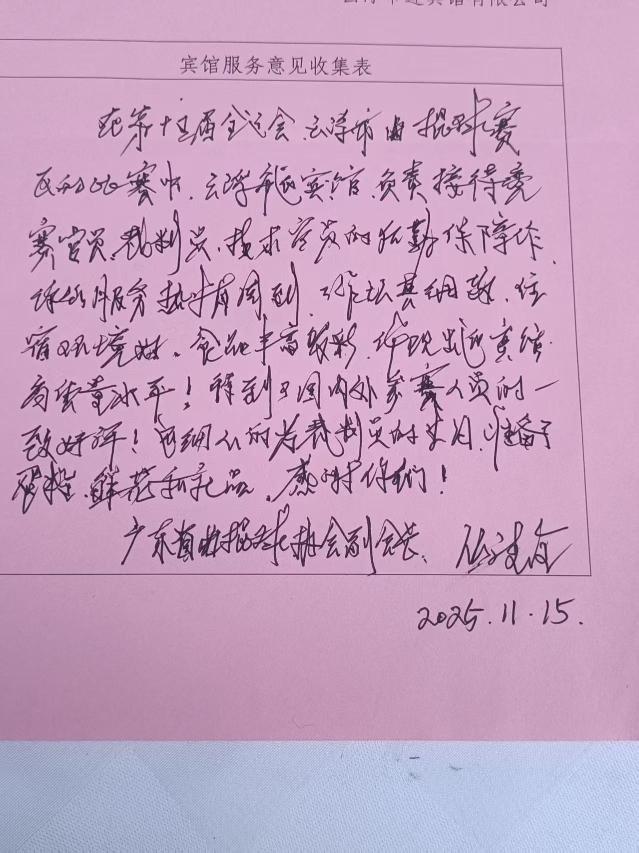 宾馆有限公司
宾馆服务意见收集表
在第十五届全运会云浮市曲棍球赛
区的比赛中,云浮 宾馆,负责接待竞
赛官员、裁判员、技术官员的后勤保障工作,
你们服务热情周到,工作认真细致,住
宿环境好,食品丰富多彩,体现出 宾馆
高质量水平!得到了国内外参赛人员的一
致好评!更细心的为裁判员的生日,准备了
蛋糕、鲜花和礼品,感谢你们!
广东省曲棍球协会副会长、
2025.11.15.